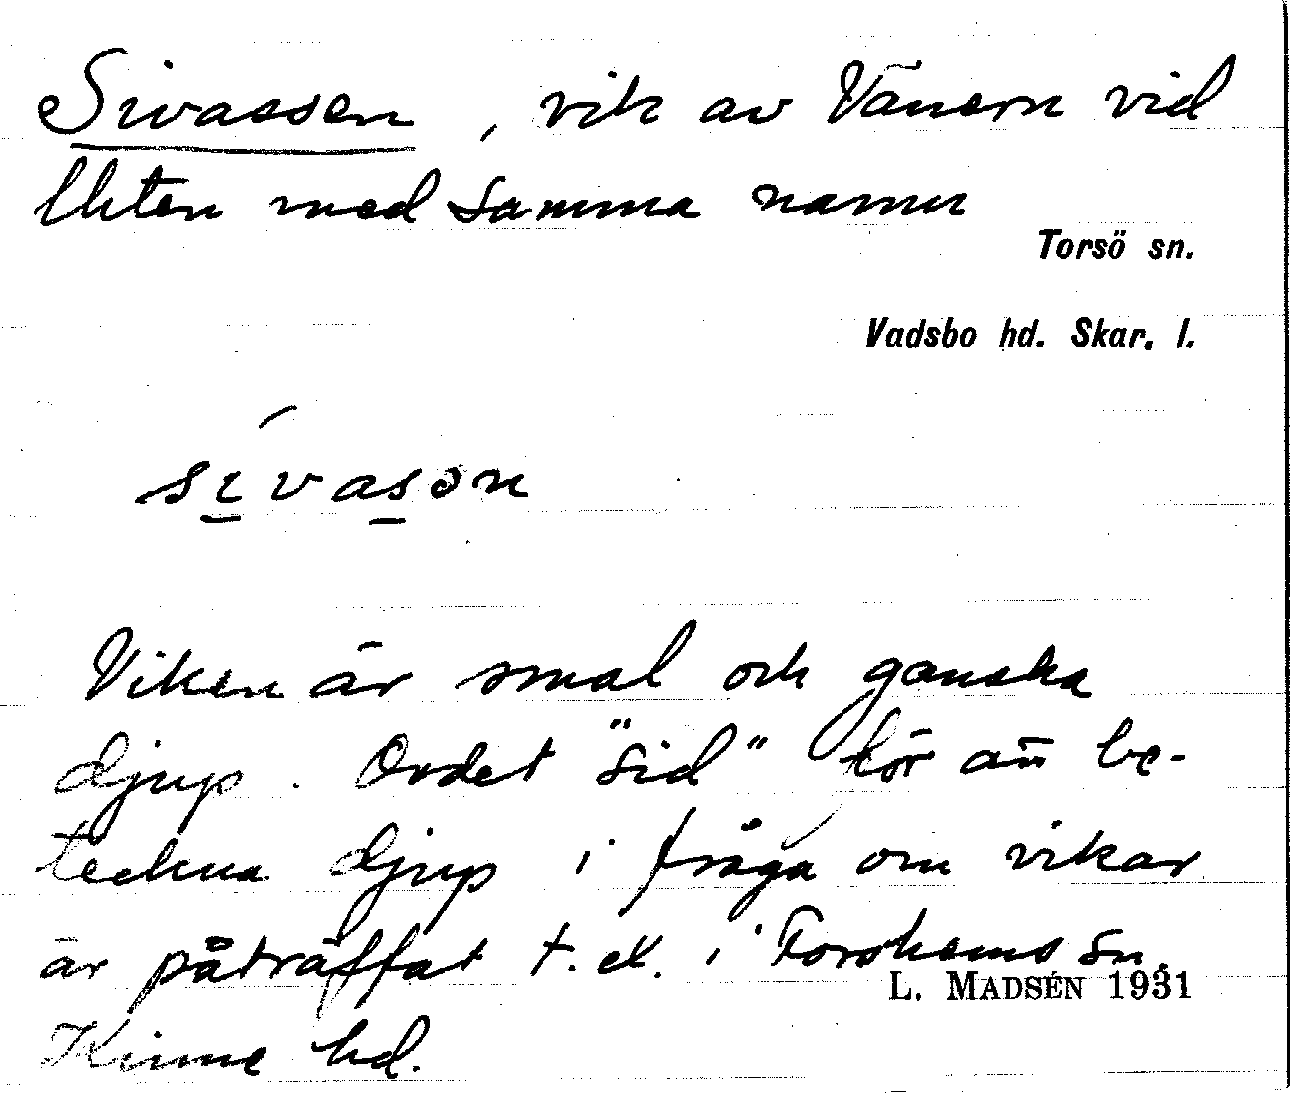 Sivassen, vik av Vänern vid
lhten med samma namn
Torsö sn.
Vadsbo hd. Skar. l.
sívasən
Viken är smal och ganska
djup. Ordet "sid" för att be-
teckna djup i fråga om vikar
är påträffat t. ex. i Forshems sn.
L. MADSÉN 1931
Kinne hd.